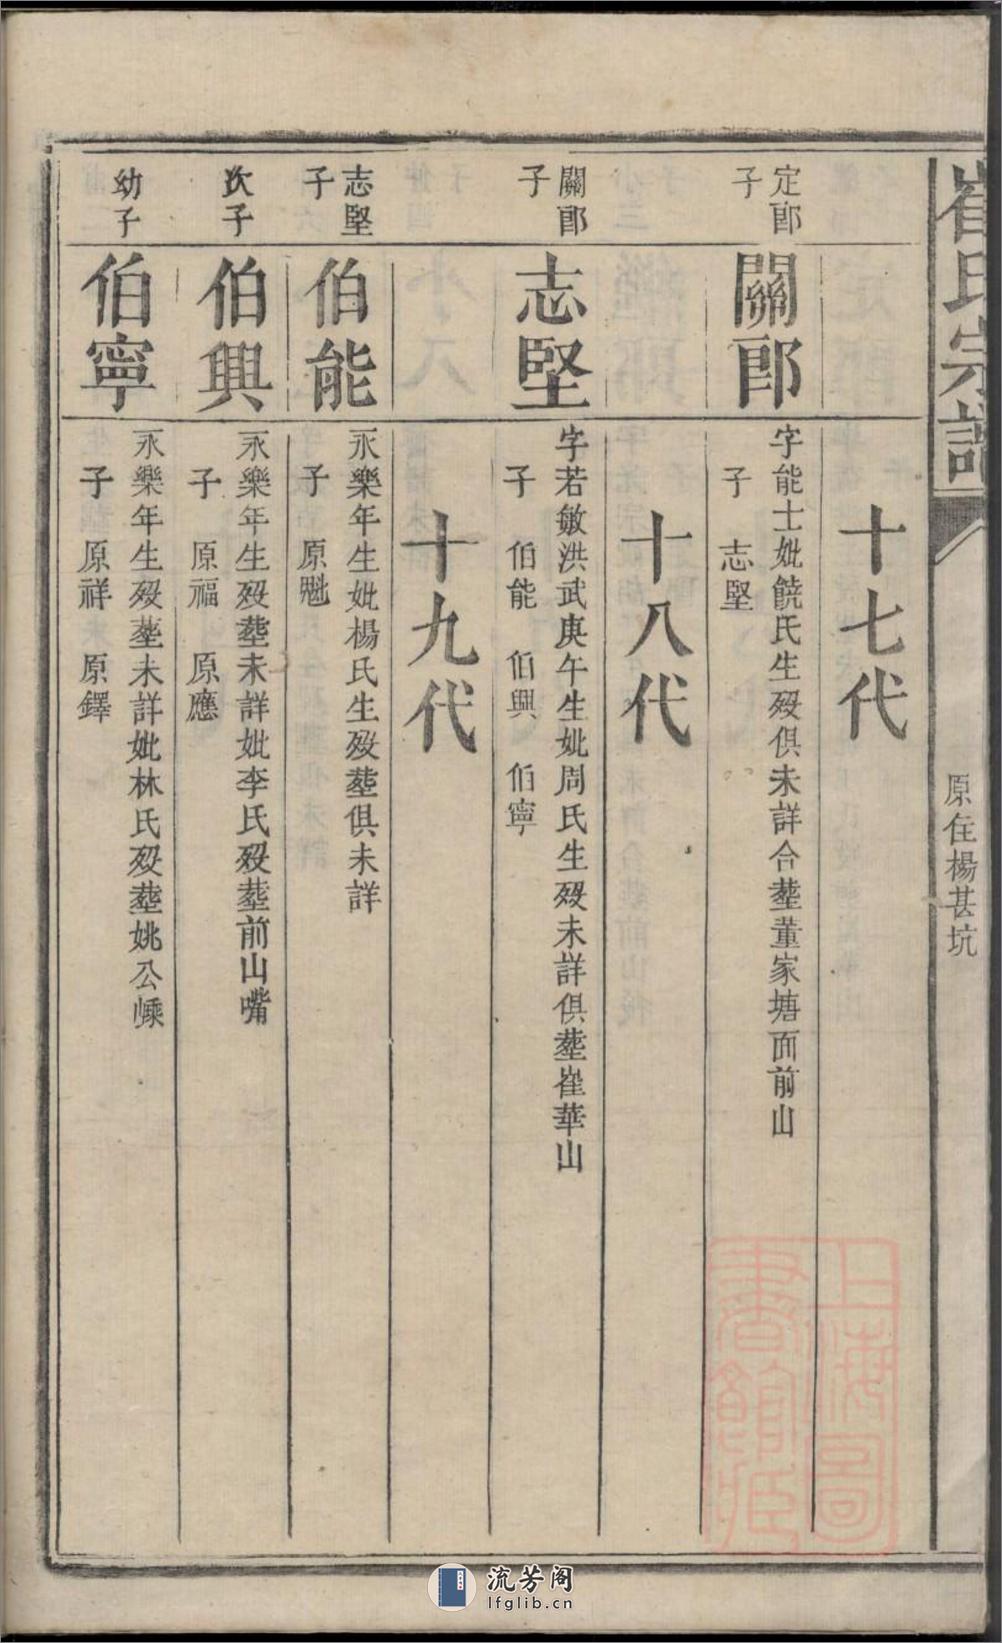 崔氏宗譜
原住楊甚坑
十七代
定郎
子
關郎
字能士妣饒氏生歿俱未詳合塟董家塘面前山
子 志堅
十八代
關郎
子
志堅
字若敏洪武庚午生妣周氏生歿未詳俱塟崔華山
子 伯能 伯興 伯寧
十九代
志堅
子
伯能
永樂年生妣楊氏生歿塟俱未詳
子 原魁
次子
伯興
永樂年生歿塟未詳妣李氏歿塟前山嘴
子 原福 原應
幼子
伯寧
永樂年生歿塟未詳妣林氏歿塟姚公嵊
子 原祥 原鐸
上海圖
書館藏
流芳阁
lfglib.cn